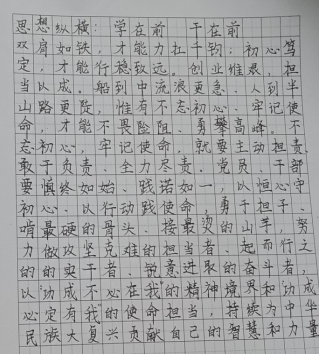 思想纵横：学在前 干在前
双肩如铁，才能力扛千钧；初心笃
定，才能行稳致远。创业维艰，担
当以成。船到中流浪更急、人到半
山路更陡，惟有不忘初心、牢记使
命，才能不畏险阻、勇攀高峰。不
忘初心，牢记使命，就要主动担责、
敢于负责、全力尽责。党员、干部
要慎终如始、践诺如一，以恒心守
初心、以行动践使命，勇于担子、
啃最硬的骨头、接最烫的山芋，努
力做攻坚克难的担当者、起而行之
的的实干者、锐意进取的奋斗者，
以"功成不必在我"的精神境界和"功成
必定有我"的使命担当，持续为中华
民族大复兴贡献自己的智慧和力量